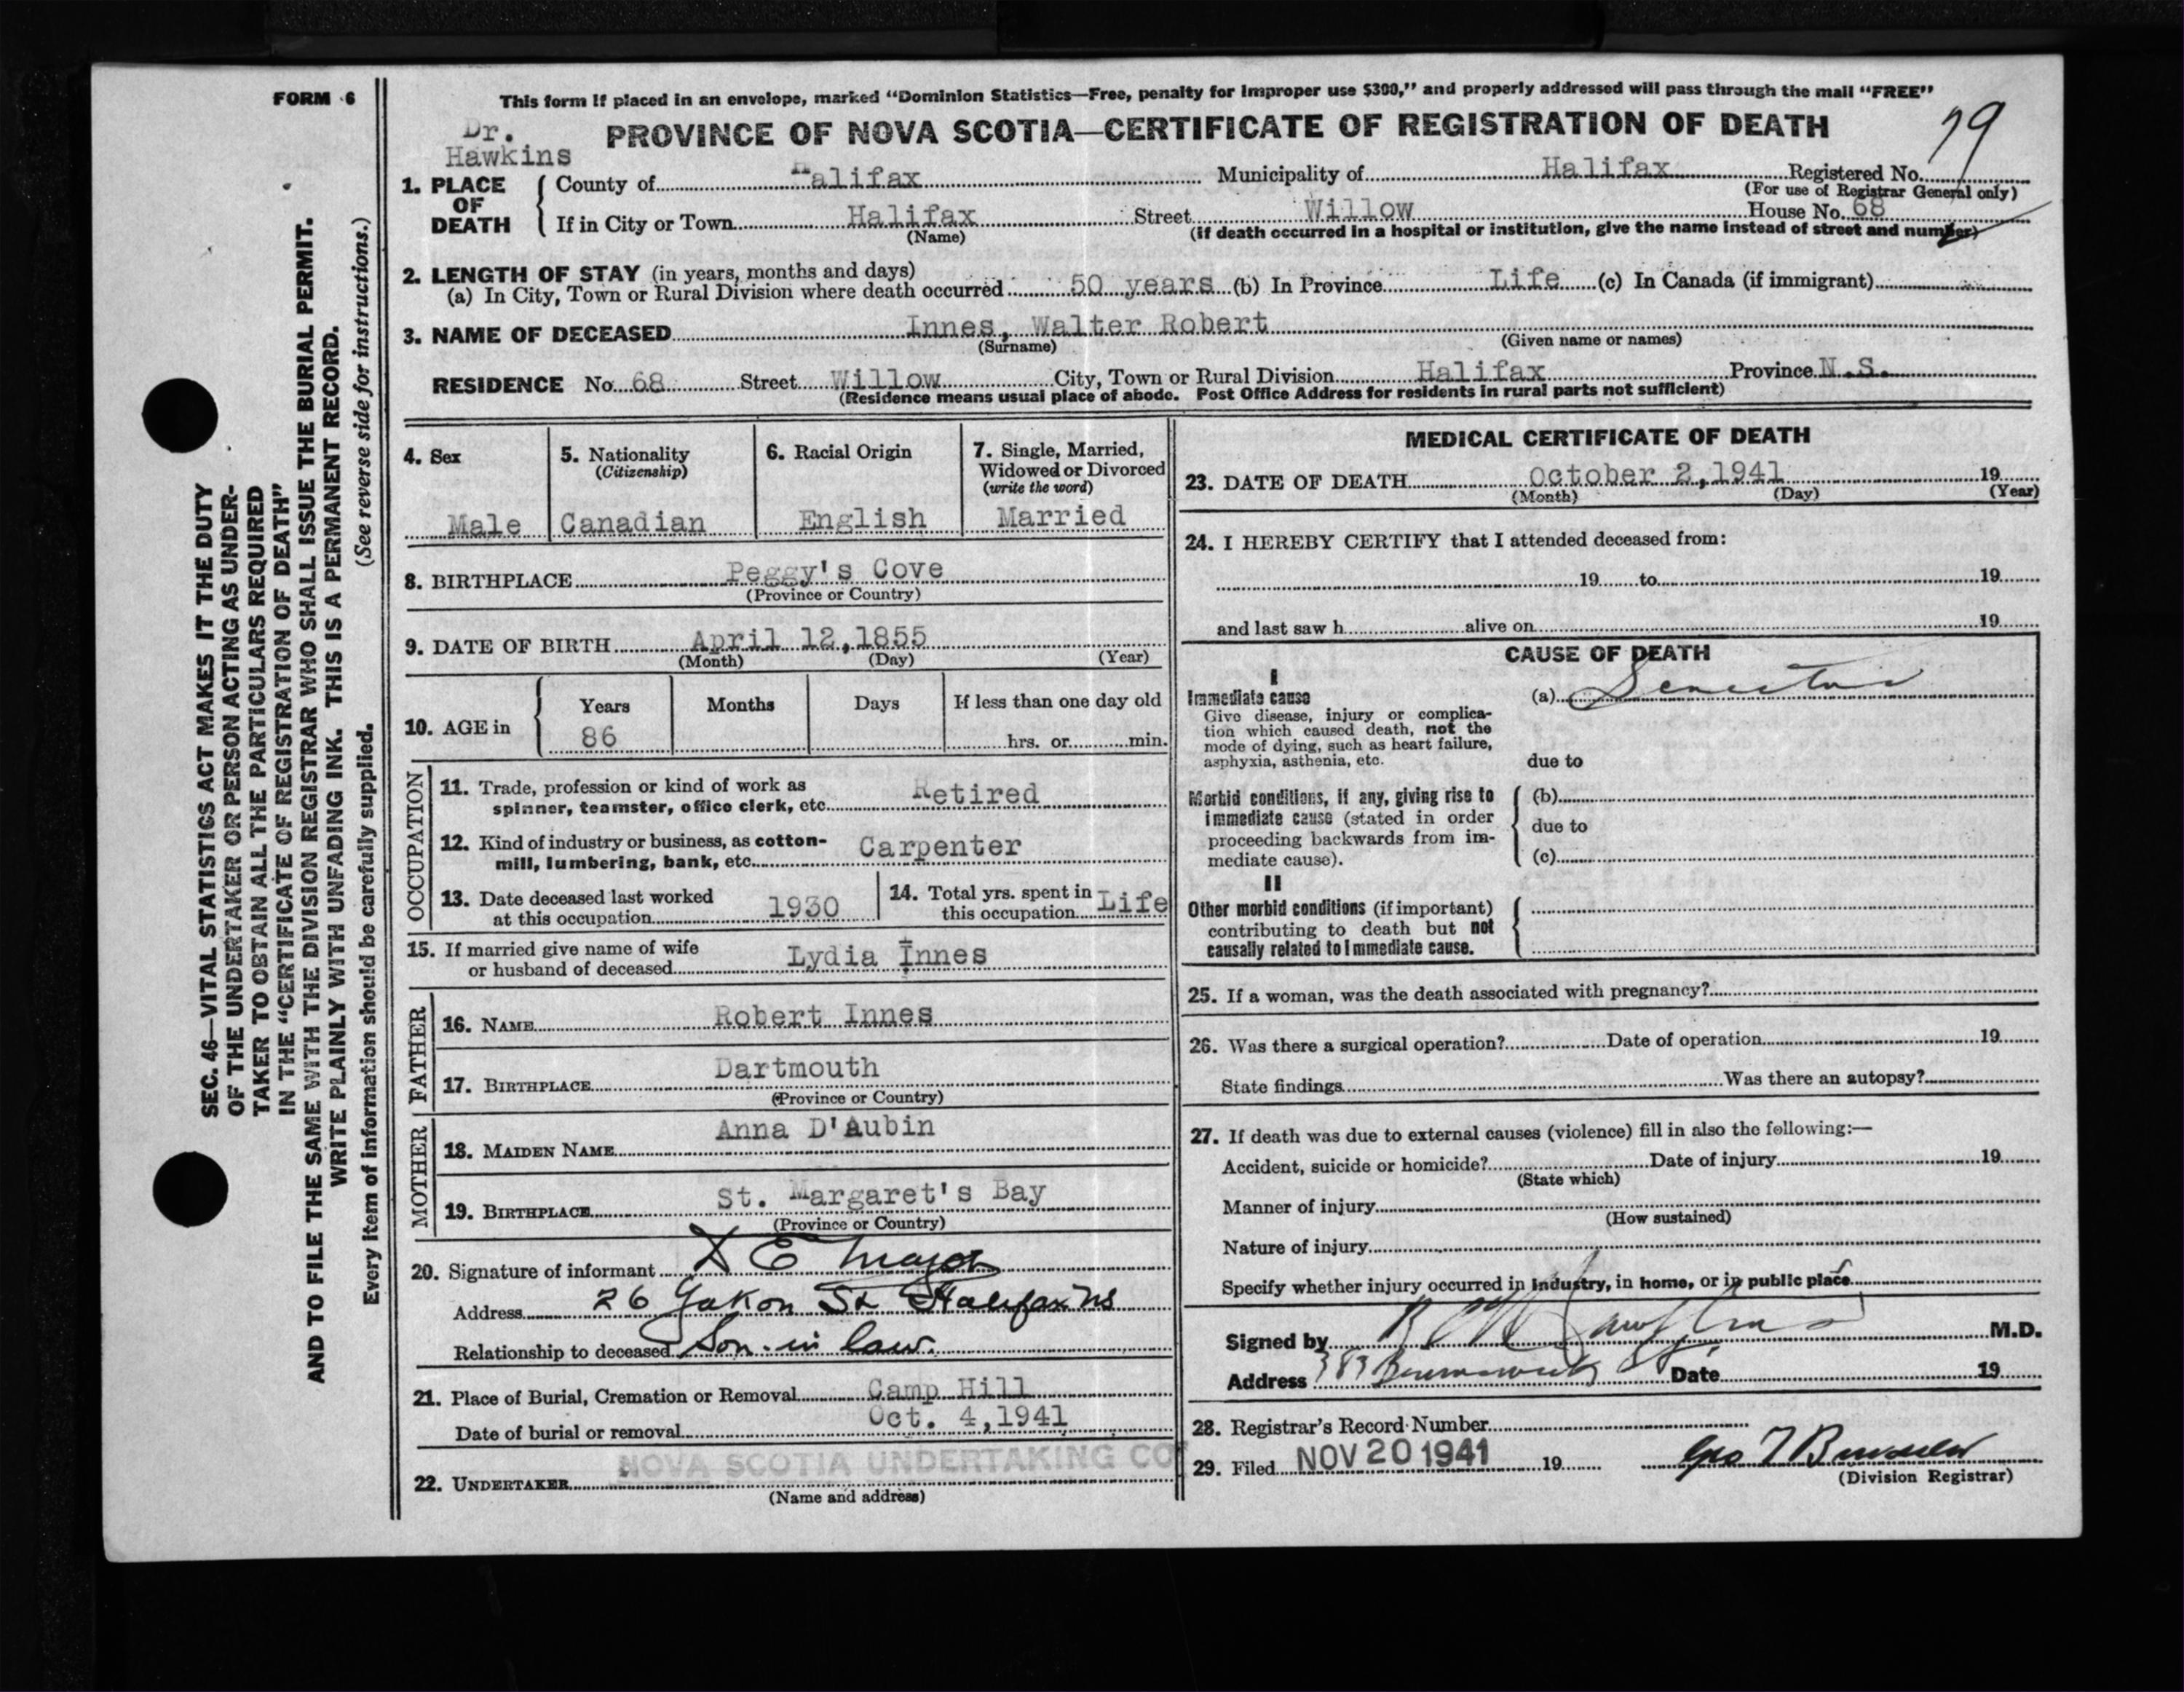 FORM 6
This form if placed in an envelope, marked “Dominion Statistics—Free, penalty for improper use $300,” and properly addressed will pass through the mail “FREE”
Dr.
Hawkins
PROVINCE OF NOVA SCOTIA—CERTIFICATE OF REGISTRATION OF DEATH
79
1. PLACE OF DEATH
County of Halifax Municipality of Halifax Registered No.
(For use of Registrar General only)
If in City or Town Halifax Street Willow House No. 68
(Name) (if death occurred in a hospital or institution, give the name instead of street and number)
2. LENGTH OF STAY (in years, months and days)
(a) In City, Town or Rural Division where death occurred 50 years (b) In Province Life (c) In Canada (if immigrant)
3. NAME OF DECEASED Innes, Walter Robert
(Surname) (Given name or names)
RESIDENCE No. 68 Street Willow City, Town or Rural Division Halifax Province N.S.
(Residence means usual place of abode. Post Office Address for residents in rural parts not sufficient)
4. Sex
Male
5. Nationality
(Citizenship)
Canadian
6. Racial Origin
English
7. Single, Married,
Widowed or Divorced
(write the word)
Married
8. BIRTHPLACE Peggy's Cove
(Province or Country)
9. DATE OF BIRTH April 12,1855
(Month) (Day) (Year)
10. AGE in
Years Months Days If less than one day old
86 hrs. or min.
OCCUPATION
11. Trade, profession or kind of work as
spinner, teamster, office clerk, etc. Retired
12. Kind of industry or business, as cotton-
mill, lumbering, bank, etc. Carpenter
13. Date deceased last worked
at this occupation 1930
14. Total yrs. spent in
this occupation Life
15. If married give name of wife
or husband of deceased Lydia Innes
FATHER
16. NAME Robert Innes
17. BIRTHPLACE Dartmouth
(Province or Country)
MOTHER
18. MAIDEN NAME Anna D'Aubin
19. BIRTHPLACE St. Margaret's Bay
(Province or Country)
20. Signature of informant E Major
Address 26 Yukon St Halifax NS
Relationship to deceased Son-in law.
21. Place of Burial, Cremation or Removal Camp Hill
Date of burial or removal Oct. 4,1941
22. UNDERTAKER NOVA SCOTIA UNDERTAKING CO
(Name and address)
MEDICAL CERTIFICATE OF DEATH
23. DATE OF DEATH October 2,1941 19
(Month) (Day) (Year)
24. I HEREBY CERTIFY that I attended deceased from:
19 to 19
and last saw h alive on 19
CAUSE OF DEATH
I
Immediate cause
Give disease, injury or complica-
tion which caused death, not the
mode of dying, such as heart failure,
asphyxia, asthenia, etc.
(a) Senectus
due to
Morbid conditions, if any, giving rise to
immediate cause (stated in order
proceeding backwards from im-
mediate cause).
(b)
due to
(c)
II
Other morbid conditions (if important)
contributing to death but not
causally related to immediate cause.
25. If a woman, was the death associated with pregnancy?
26. Was there a surgical operation? Date of operation 19
State findings Was there an autopsy?
27. If death was due to external causes (violence) fill in also the following:—
Accident, suicide or homicide? Date of injury 19
(State which)
Manner of injury
(How sustained)
Nature of injury
Specify whether injury occurred in industry, in home, or in public place
Signed by Hawkins M.D.
Address Brunswick St Date 19
28. Registrar's Record Number
29. Filed NOV 20 1941 19
(Division Registrar)
SEC. 46—VITAL STATISTICS ACT MAKES IT THE DUTY
OF THE UNDERTAKER OR PERSON ACTING AS UNDER-
TAKER TO OBTAIN ALL THE PARTICULARS REQUIRED
IN THE “CERTIFICATE OF REGISTRATION OF DEATH”
AND TO FILE THE SAME WITH THE DIVISION REGISTRAR WHO SHALL ISSUE THE BURIAL PERMIT.
WRITE PLAINLY WITH UNFADING INK. THIS IS A PERMANENT RECORD.
Every item of information should be carefully supplied. (See reverse side for instructions.)